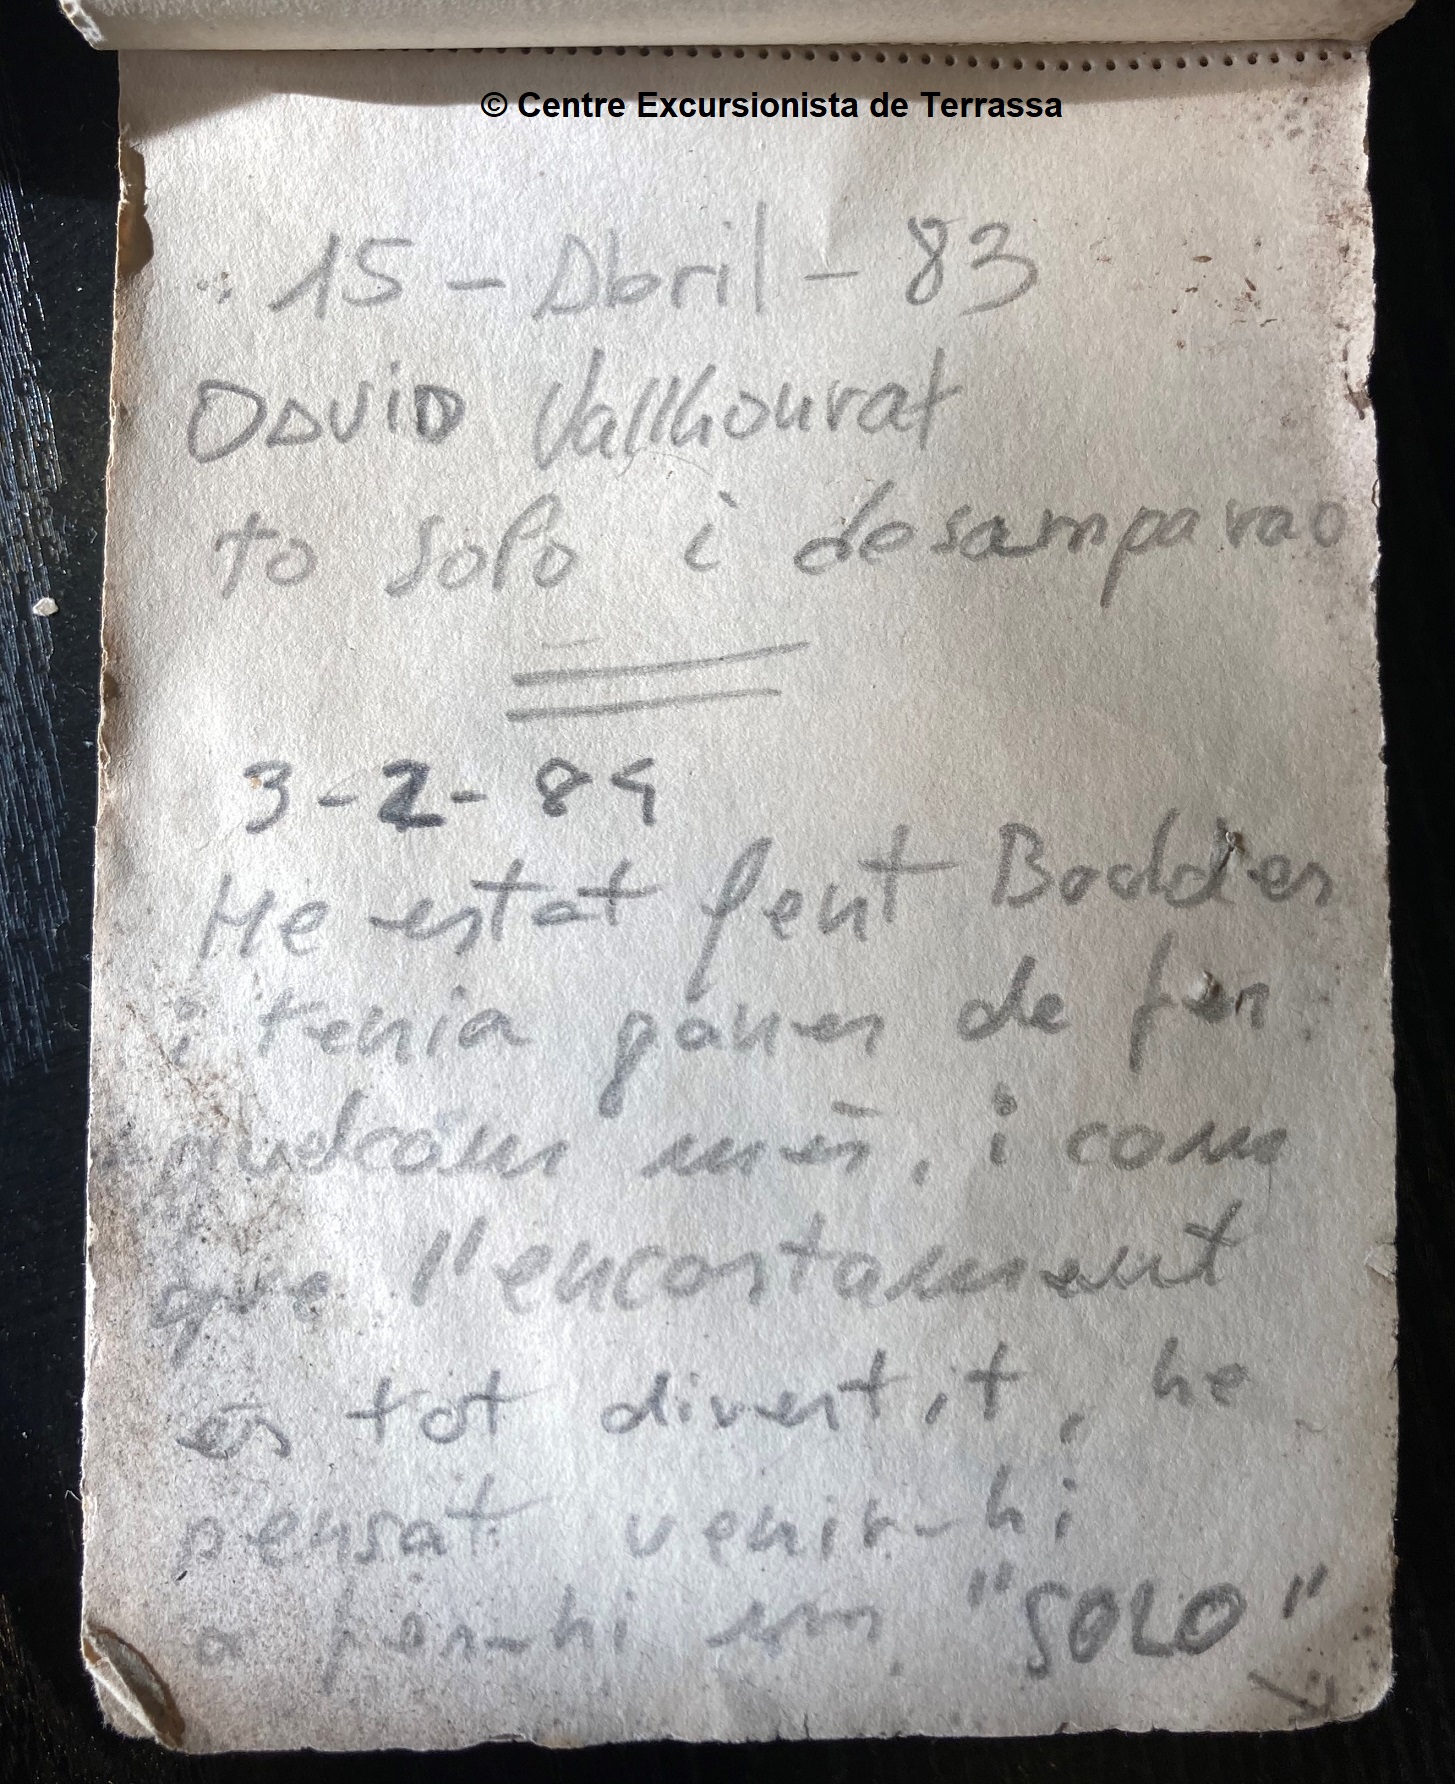 © Centre Excursionista de Terrassa
15 - Abril - 83
DAVID Vallhonrat
to solo i desamparao
3-2-84
He estat fent
i tenia ganes de fer
quelcom més, i com
que l'encostament
és tot divertit, he
pensat venir-hi
a fer-hi un "SOLO"